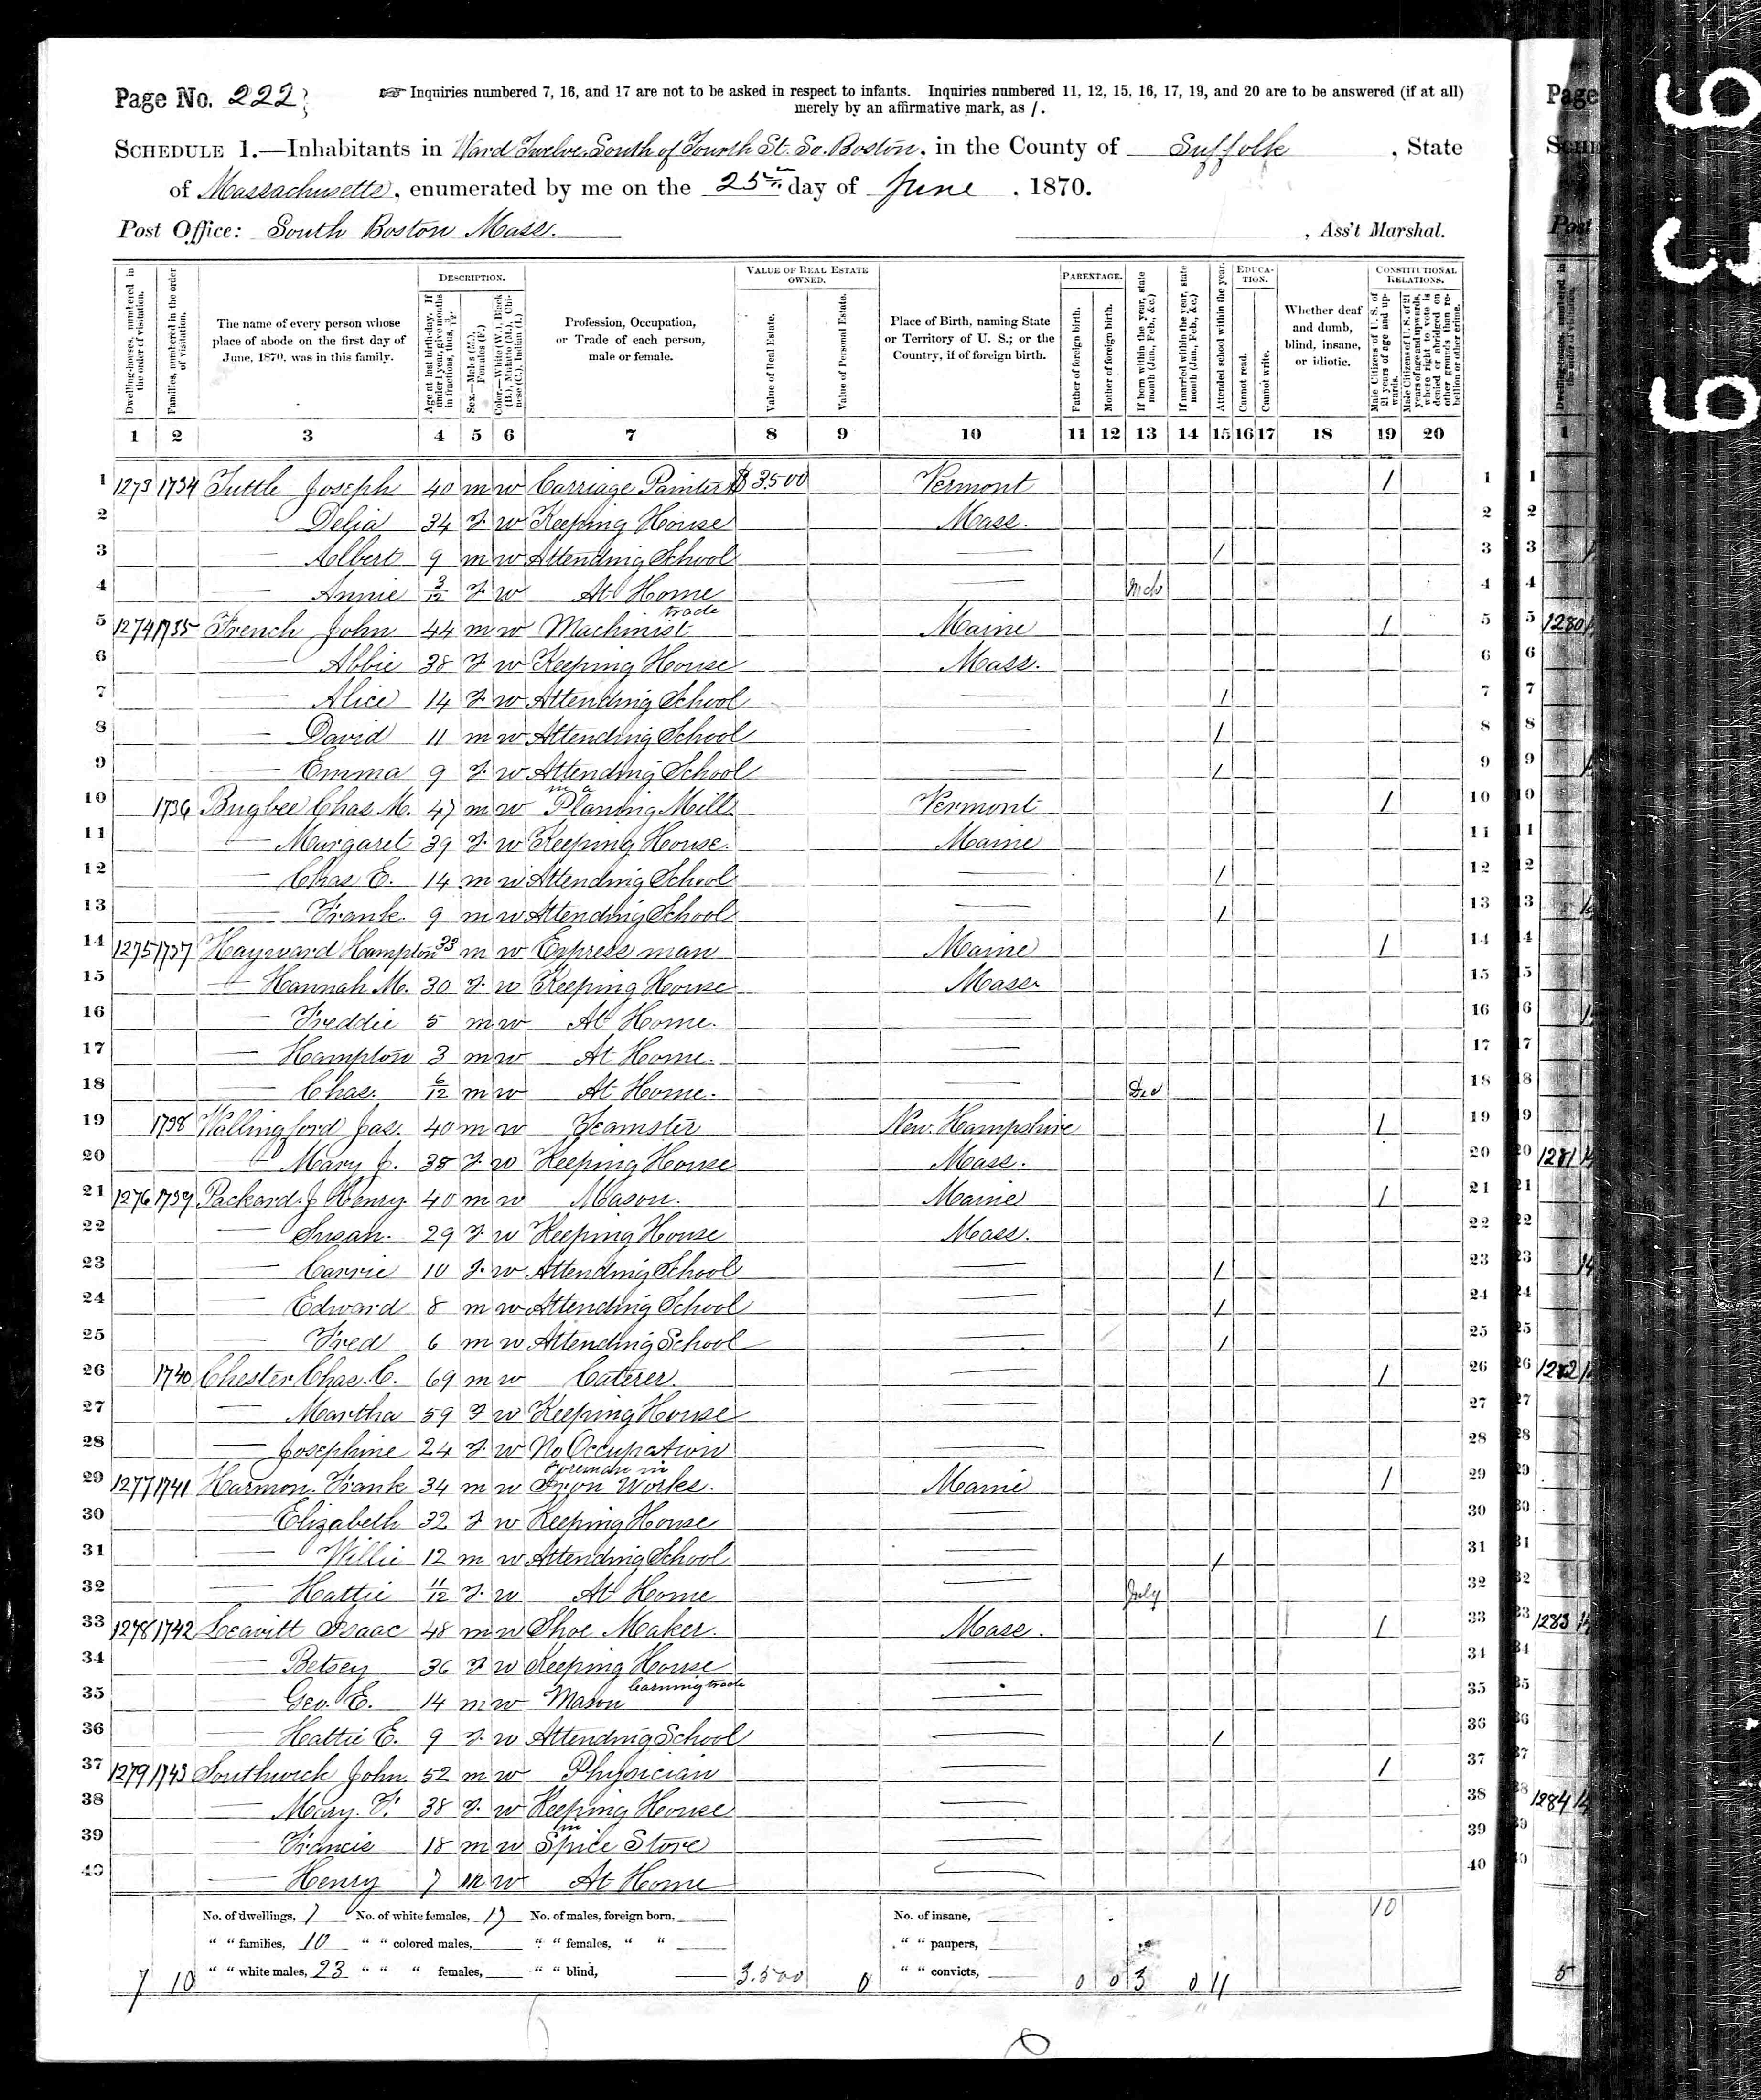 Page No. 222
☞ Inquiries numbered 7, 16, and 17 are not to be asked in respect to infants. Inquiries numbered 11, 12, 15, 16, 17, 19, and 20 are to be answered (if at all)
merely by an affirmative mark, as /.
SCHEDULE 1.—Inhabitants in Ward Twelve South of Fourth St. So. Boston, in the County of Suffolk, State
of Massachusetts, enumerated by me on the 25th day of June, 1870.
Post Office: South Boston Mass. , Ass't Marshal.
DESCRIPTION. VALUE OF REAL ESTATE OWNED. PARENTAGE. EDUCATION. CONSTITUTIONAL RELATIONS.
Dwelling-houses, numbered in the order of visitation.
Families, numbered in the order of visitation.
The name of every person whose place of abode on the first day of June, 1870, was in this family.
Age at last birth-day. If under 1 year, give months in fractions, thus, 3/12.
Sex.—Males (M.), Females (F.)
Color.—White (W.), Black (B.), Mulatto (M.), Chinese (C.), Indian (I.)
Profession, Occupation, or Trade of each person, male or female.
Value of Real Estate.
Value of Personal Estate.
Place of Birth, naming State or Territory of U. S.; or the Country, if of foreign birth.
Father of foreign birth.
Mother of foreign birth.
If born within the year, state month (Jan., Feb., &c.)
If married within the year, state month (Jan., Feb., &c.)
Attended school within the year.
Cannot read.
Cannot write.
Whether deaf and dumb, blind, insane, or idiotic.
Male Citizens of U. S. of 21 years of age and upwards.
Male Citizens of U. S. of 21 years of age and upwards, where right to vote is denied or abridged on other grounds than rebellion or other crime.
1 2 3 4 5 6 7 8 9 10 11 12 13 14 15 16 17 18 19 20
1 1273 1734 Tuttle Joseph 40 m w Carriage Painter $3500 Vermont / 1
2 — Delia 34 F. w Keeping House Mass. 2
3 — Albert 9 m w Attending School — / 3
4 — Annie 3/12 F. w At Home — Mch 4
5 1274 1735 French John 44 m w Machinist trade Maine / 5
6 — Abbie 38 F. w Keeping House Mass. 6
7 — Alice 14 F. w Attending School — / 7
8 — David 11 m w Attending School — / 8
9 — Emma 9 F. w Attending School — / 9
10 1736 Bugbee Chas M. 47 m w in a Planing Mill Vermont / 10
11 — Margaret 39 F. w Keeping House. Maine 11
12 — Chas E. 14 m w Attending School — / 12
13 — Frank. 9 m w Attending School — / 13
14 1275 1737 Hayward Hampton 33 m w Express man Maine / 14
15 — Hannah M. 30 F. w Keeping House Mass 15
16 — Freddie 5 m w At Home. — 16
17 — Hampton 3 m w At Home. — 17
18 — Chas. 6/12 m w At Home. — Dec 18
19 1738 Wallingford Jas. 40 m w Teamster New. Hampshire / 19
20 — Mary J. 35 F. w Keeping House Mass. 20
21 1276 1739 Packard. J Henry 40 m w Mason. Maine / 21
22 — Susan. 29 F. w Keeping House Mass. 22
23 — Carrie 10 F. w Attending School — / 23
24 — Edward 8 m w Attending School — / 24
25 — Fred 6 m w Attending School — / 25
26 1740 Chester Chas. C. 69 m w Caterer. — / 26
27 — Martha 59 F w Keeping House — 27
28 — Josephine 24 F. w No Occupation — 28
29 1277 1741 Harmon. Frank 34 m w Foreman in Iron Works. Maine / 29
30 — Elizabeth 32 F w Keeping House — 30
31 — Willie 12 m w Attending School — / 31
32 — Hattie 11/12 F. w At Home — July 32
33 1278 1742 Leavitt Isaac 48 m w Shoe Maker. Mass. / 33
34 — Betsey 36 F w Keeping House — 34
35 — Geo. E. 14 m w Mason learning trade — 35
36 — Hattie E. 9 F. w Attending School — / 36
37 1279 1743 Southwick John. 52 m w Physician — / 37
38 — Mary. F. 38 F. w Keeping House — 38
39 — Francis 18 m w in Spice Store — 39
40 — Henry 7 m w At Home — 40
No. of dwellings, 7 No. of white females, 17 No. of males, foreign born, No. of insane, 10
" " families, 10 " " colored males, " " females, " " " " paupers,
7 10 " " white males, 23 " " " females, " " blind, 3.500 0 " " convicts, 0 0 3 0 11
Page
Post
1
1280
1281
1282
1283
1284
5